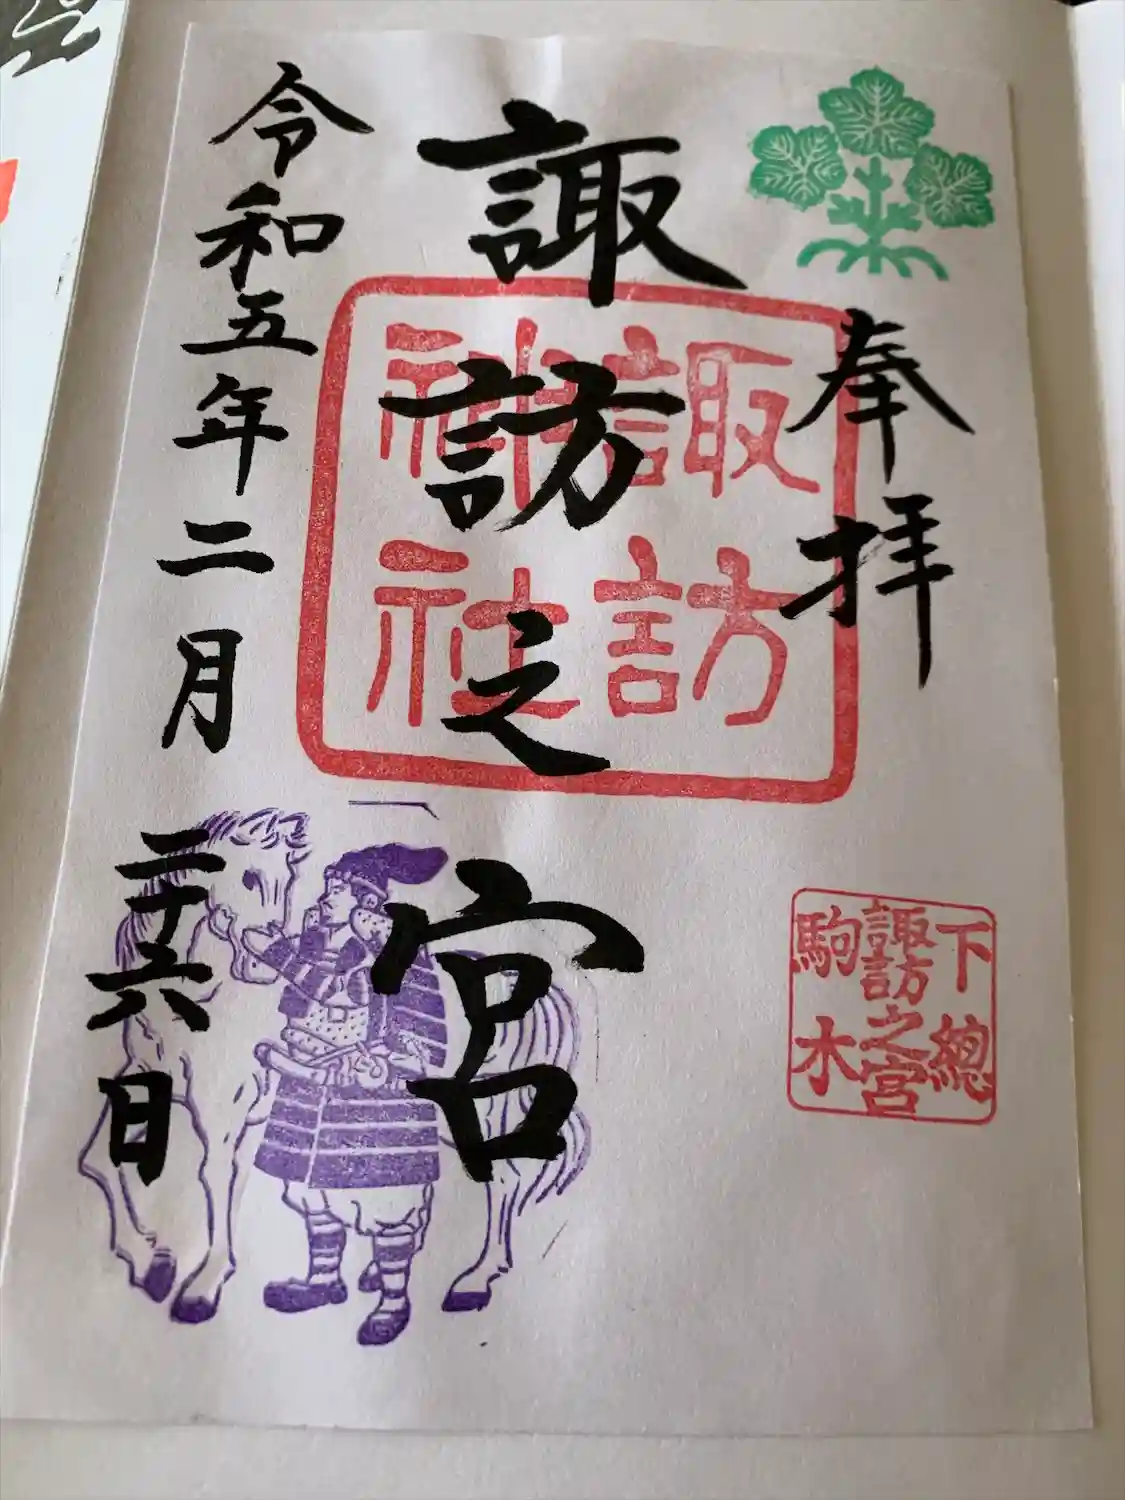 奉拝
諏訪之宮
令和五年二月二十六日
諏訪
神社
下總
諏訪之宮
駒木